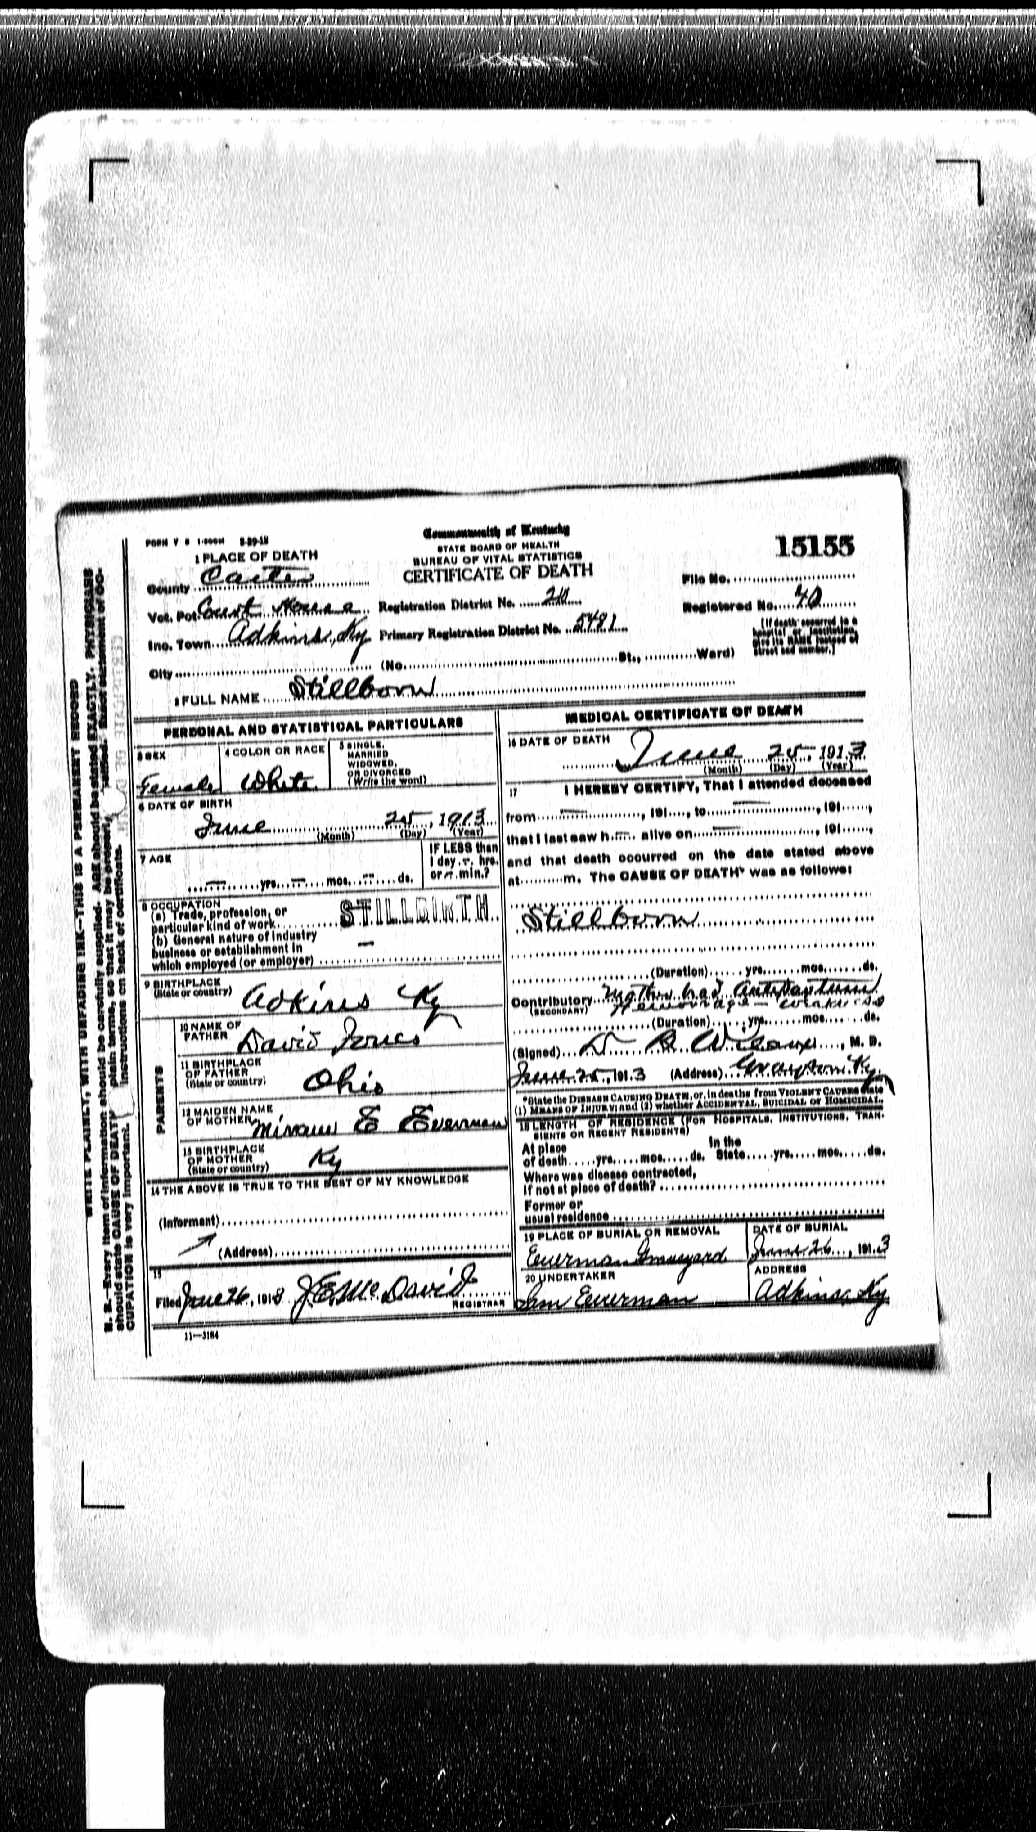 FORM V S 1-500M 8-29-12
Commonwealth of Kentucky
STATE BOARD OF HEALTH
BUREAU OF VITAL STATISTICS
CERTIFICATE OF DEATH
15155
1 PLACE OF DEATH
County Carter
Vot. Pct. Court House
Inc. Town Adkins, Ky
City
Registration District No. 210
Primary Registration District No. 5481
(No. St., Ward)
File No.
Registered No. 40
[If death occurred in a
hospital or institution,
give its NAME instead of
street and number.]
2 FULL NAME Stillborn
PERSONAL AND STATISTICAL PARTICULARS
3 SEX
Female
4 COLOR OR RACE
White
5 SINGLE,
MARRIED
WIDOWED,
OR DIVORCED
(Write the word)
6 DATE OF BIRTH
June 25, 1913
(Month) (Day) (Year)
7 AGE
yrs. mos. ds.
IF LESS than
1 day, hrs.
or min.?
8 OCCUPATION
(a) Trade, profession, or
particular kind of work
STILLBIRTH
(b) General nature of industry
business or establishment in
which employed (or employer)
9 BIRTHPLACE
(State or country)
Adkins Ky
PARENTS
10 NAME OF
FATHER
David Jones
11 BIRTHPLACE
OF FATHER
(State or country)
Ohio
12 MAIDEN NAME
OF MOTHER
E Everman
13 BIRTHPLACE
OF MOTHER
(State or country)
Ky
14 THE ABOVE IS TRUE TO THE BEST OF MY KNOWLEDGE
(Informant)
(Address)
15
Filed June 26, 1913 J.E. McDavid
REGISTRAR
11—3184
MEDICAL CERTIFICATE OF DEATH
16 DATE OF DEATH
June 25, 1913
(Month) (Day) (Year)
17 I HEREBY CERTIFY, That I attended deceased
from , 191 , to , 191 ,
that I last saw h alive on , 191 ,
and that death occurred on the date stated above
at m. The CAUSE OF DEATH* was as follows:
Stillborn
(Duration) yrs. mos. ds.
Contributory Mother had Antepartum
(SECONDARY) Hemorrage - weakness
(Duration) yrs. mos. ds.
(Signed) , M. D.
June 25, 1913 (Address) Grayson Ky
*State the DISEASE CAUSING DEATH, or, in deaths from VIOLENT CAUSES state
(1) MEANS OF INJURY; and (2) whether ACCIDENTAL, SUICIDAL OR HOMICIDAL.
18 LENGTH OF RESIDENCE (FOR HOSPITALS, INSTITUTIONS, TRAN-
SIENTS OR RECENT RESIDENTS)
At place In the
of death yrs. mos. ds. State yrs. mos. ds.
Where was disease contracted,
if not at place of death?
Former or
usual residence
19 PLACE OF BURIAL OR REMOVAL
Everman Graveyard
DATE OF BURIAL
June 26, 1913
20 UNDERTAKER
Sam Everman
ADDRESS
Adkins, Ky
WRITE PLAINLY, WITH UNFADING INK—THIS IS A PERMANENT RECORD
N. B.—Every item of information should be carefully supplied. AGE should be stated EXACTLY. PHYSICIANS
should state CAUSE OF DEATH in plain terms, so that it may be properly classified. Exact statement of OC-
CUPATION is very important. Instructions on back of certificate.